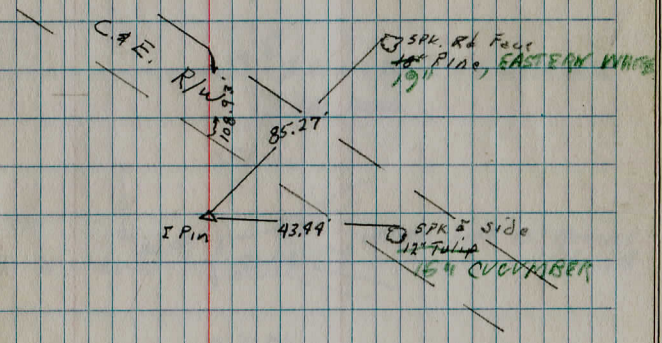 C. & E.
R/W
108.93'
SPK. Rd Face
18" Pine, EASTERN WHITE
19"
85.27'
I Pin
43.44'
SPK @ Side
12" Tulip
15" CUCUMBER